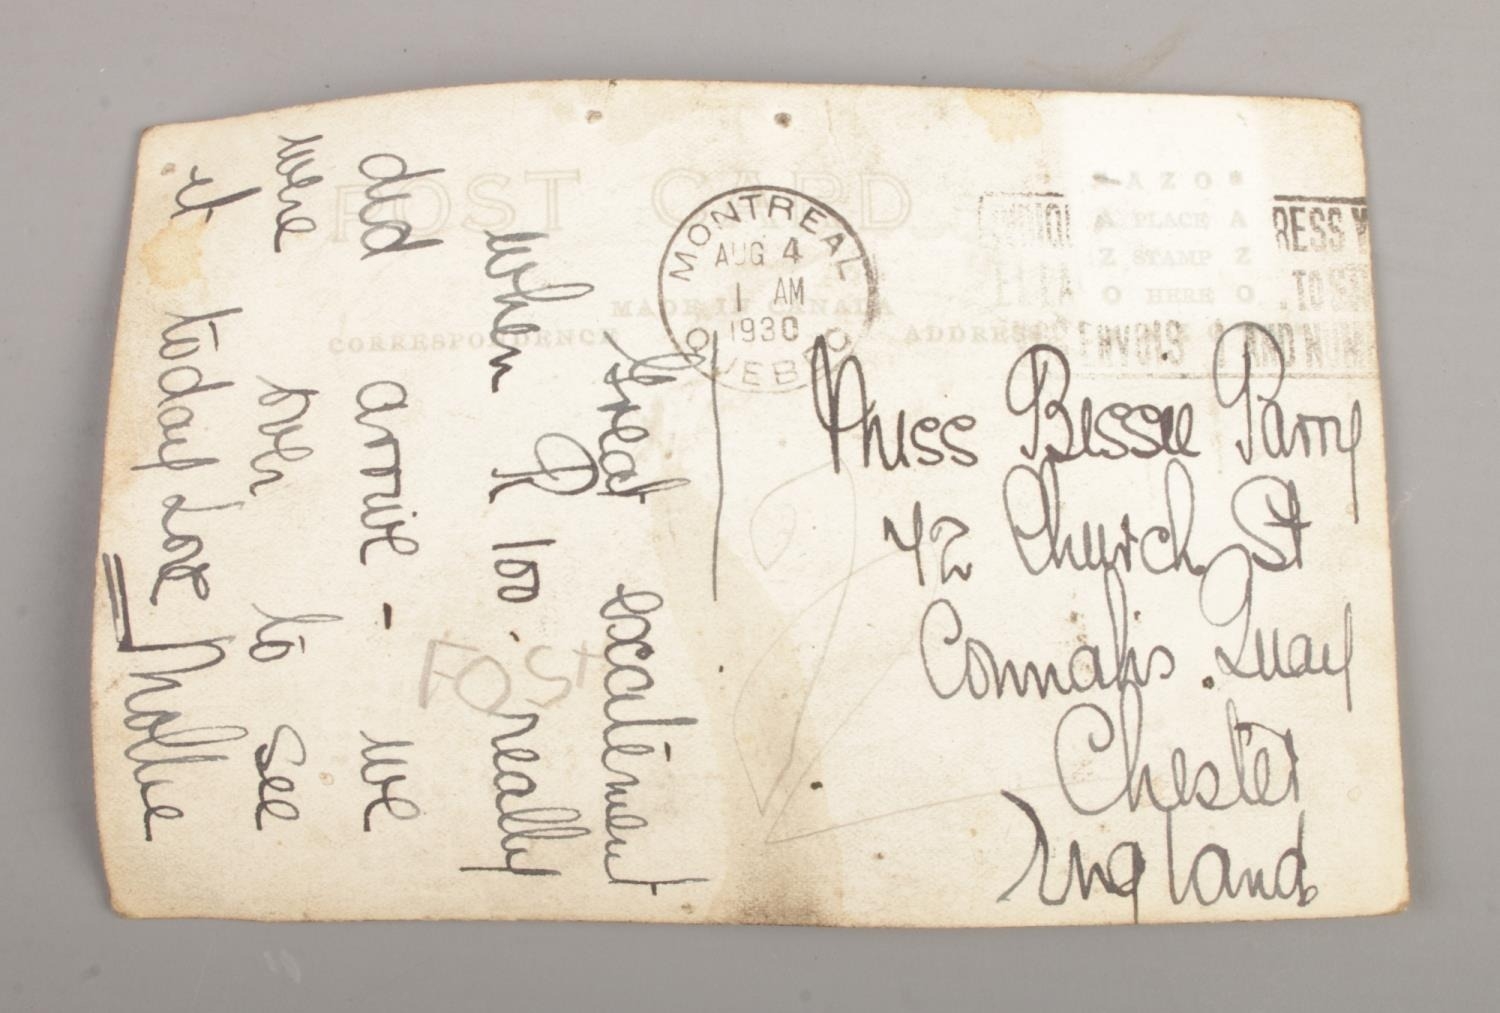 POST CARD
MADE IN CANADA
CORRESPONDENCE
ADDRESS
MONTREAL
AUG 4
1 AM
1930
QUEBEC
AZO
A PLACE A
Z STAMP Z
O HERE O
RESS
TO
ENVOIS
AND
Great excitement
when R 100. really
did arrive - we
were over to see
it today Love
Mollie
FOST
Miss Bessie Parry
42 Church St
Connahs. Quay
Chester
England